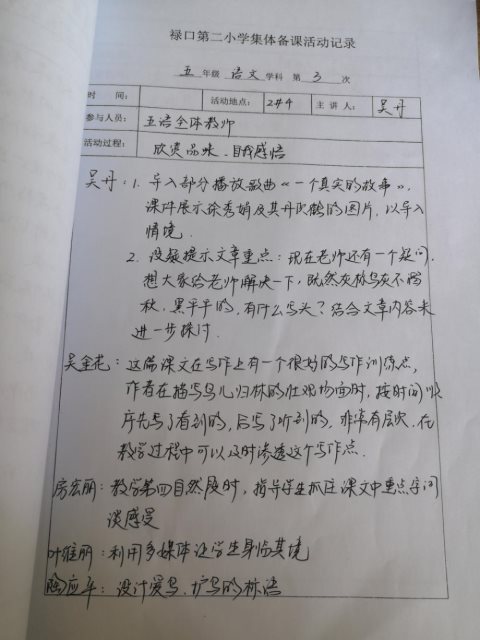 禄口第二小学集体备课活动记录
五 年级 语文 学科 第 3 次
时 间： 活动地点： 2#4 主 讲 人： 吴丹
参与人员： 五语全体教师
活动过程： 欣赏品味、自我感悟
吴丹：1. 导入部分播放歌曲《一个真实的故事》，
课件展示徐秀娟及其丹顶鹤的图片，以导入
情境.
2. 设疑提示文章重点：现在老师还有一个疑问，
想大家给老师解决一下，既然灰椋鸟灰不溜
秋，黑乎乎的，有什么写头？结合文章内容来
进一步探讨.
吴金花：这篇课文在写作上有一个很好的写作训练点，
作者在描写鸟儿归林的壮观场面时，按时间顺
序先写了看到的，后写了听到的，非常有层次.在
教学过程中可以及时渗透这个写作点.
房宏丽：教学第四自然段时，指导学生抓住课文中重点字词
谈感受
叶维丽：利用多媒体让学生身临其境
陶应平：设计爱鸟、护鸟的标语